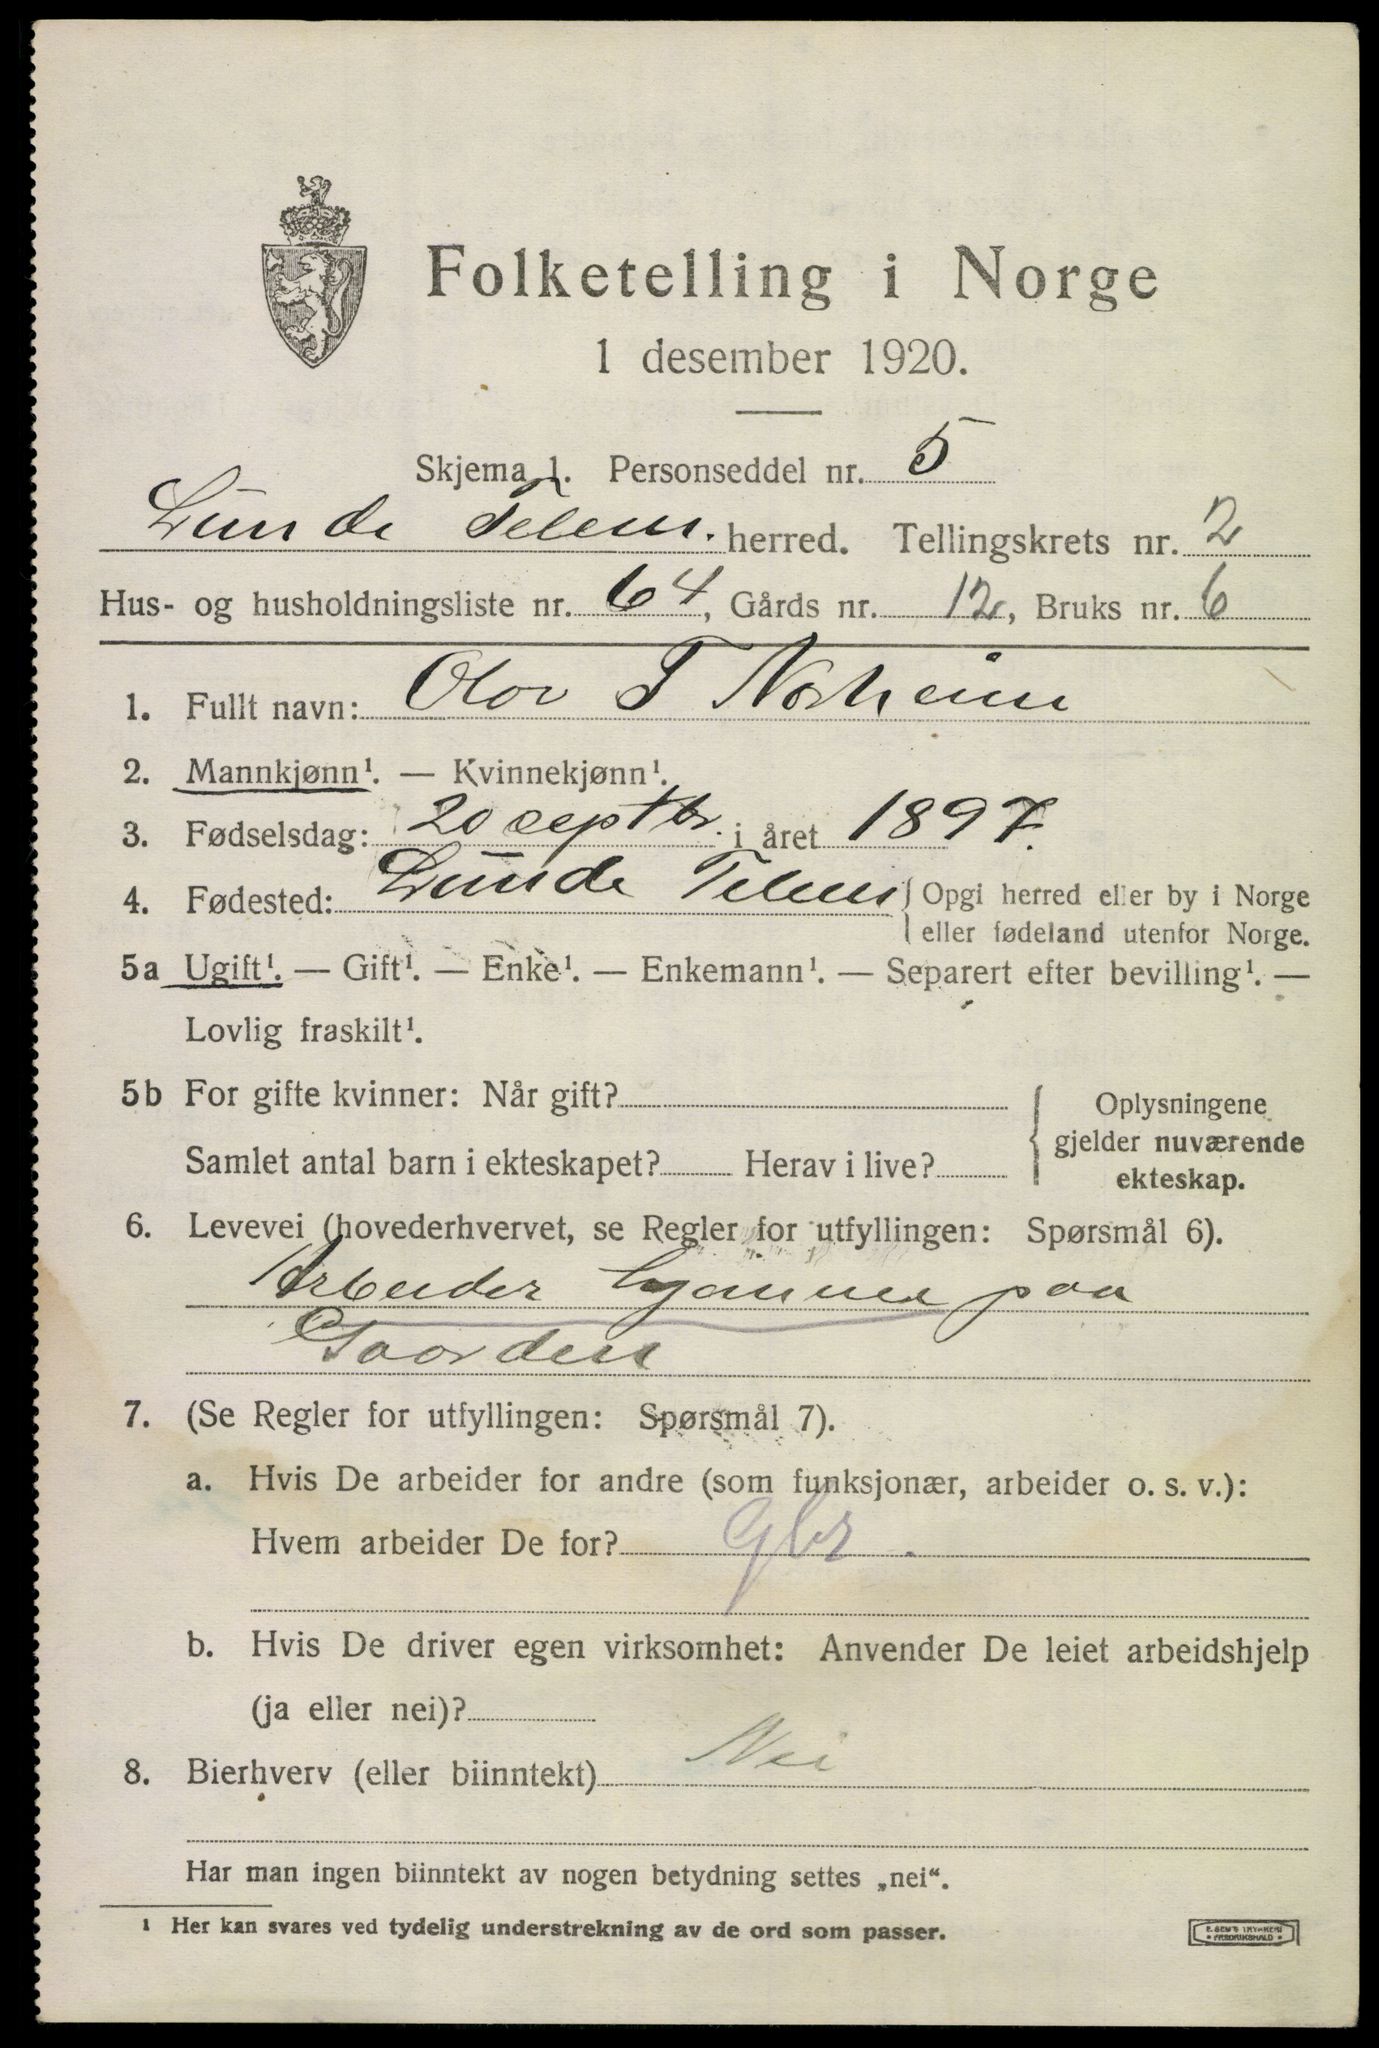 Folketelling i Norge
1 desember 1920.
Skjema 1. Personseddel nr. 5
Lunde Telem. herred. Tellingskrets nr. 2
Hus- og husholdningsliste nr. 64, Gårds nr. 12, Bruks nr. 6
1. Fullt navn: Olav T Norheim
2. Mannkjønn¹. — Kvinnekjønn¹.
3. Fødselsdag: 20 septbr. i året 1897.
4. Fødested: Lunde Telem { Opgi herred eller by i Norge
eller fødeland utenfor Norge.
5a Ugift¹. — Gift¹. — Enke¹. — Enkemann¹. — Separert efter bevilling¹. —
Lovlig fraskilt¹.
5b For gifte kvinner: Når gift?
Samlet antal barn i ekteskapet? Herav i live?
Oplysningene
gjelder nuværende
ekteskap.
6. Levevei (hovederhvervet, se Regler for utfyllingen: Spørsmål 6).
Arbeider hjemme paa
Gaarden
7. (Se Regler for utfyllingen: Spørsmål 7).
a. Hvis De arbeider for andre (som funksjonær, arbeider o. s. v.):
Hvem arbeider De for? Gbr.
b. Hvis De driver egen virksomhet: Anvender De leiet arbeidshjelp
(ja eller nei)?
8. Bierhverv (eller biinntekt) Nei
Har man ingen biinntekt av nogen betydning settes „nei“.
¹ Her kan svares ved tydelig understrekning av de ord som passer.
E. SEM'S TRYKKERI
FREDRIKSHALD